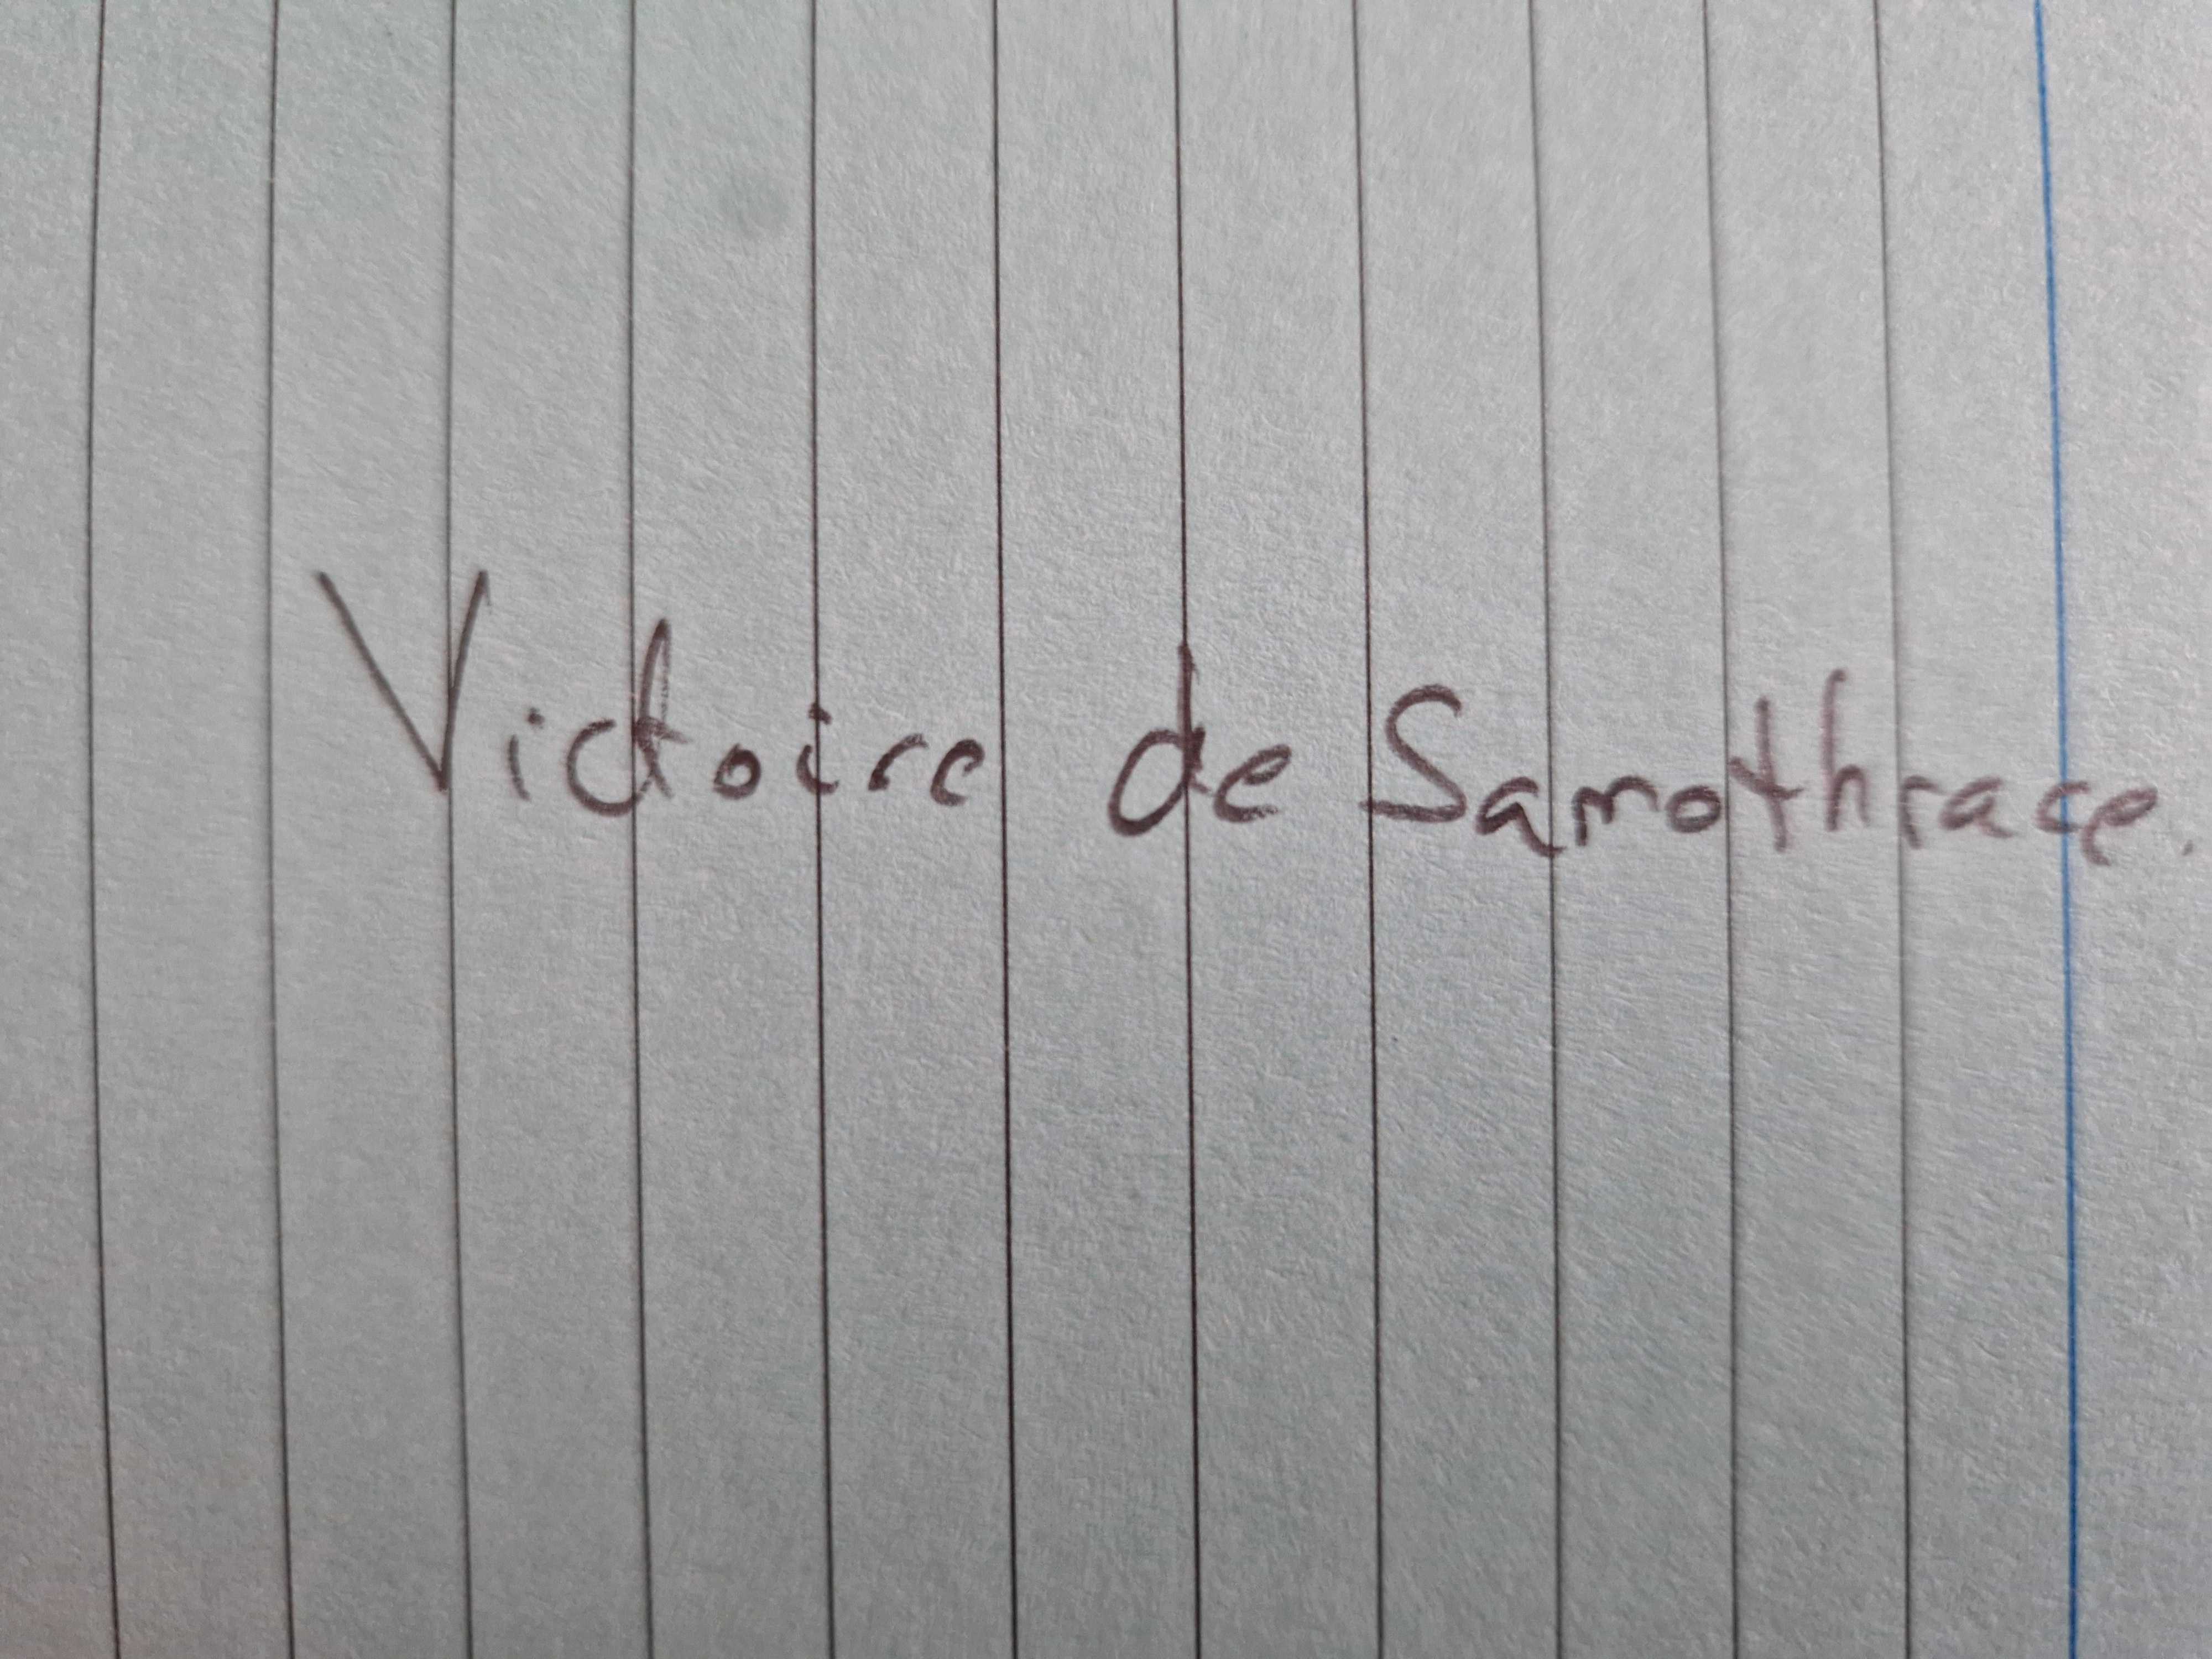 Victoire de Samothrace.